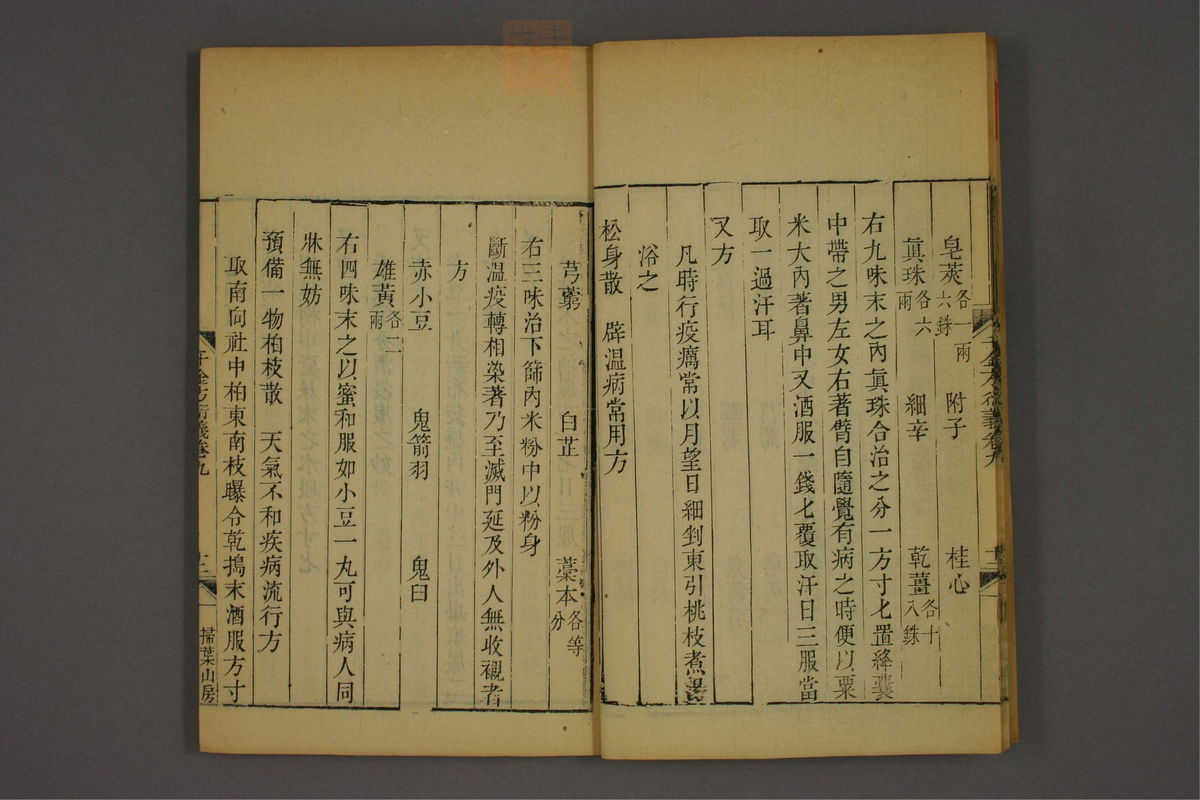 皂莢各一兩六銖 附子 桂心
眞珠各六兩 細辛 乾薑各十八銖
右九味末之內眞珠合治之分一方寸匕置絳囊
中帶之男左女右著臂自隨覺有病之時便以粟
米大內著鼻中又酒服一錢匕覆取汗日三服當
取一過汗耳
又方
凡時行疫癘常以月望日細剉東引桃枝煮湯
浴之
松身散 辟溫病常用方
芎藭 白芷 藁本各等分
右三味治下篩內米粉中以粉身
斷溫疫轉相染著乃至滅門延及外人無收襯者
方
赤小豆 鬼箭羽 鬼臼
雄黃各二兩
右四味末之以蜜和服如小豆一丸可與病人同
牀無妨
預備一物柏枝散 天氣不和疾病流行方
取南向社中柏東南枝曝令乾搗末酒服方寸
千金方衍義卷九
十二
掃葉山房